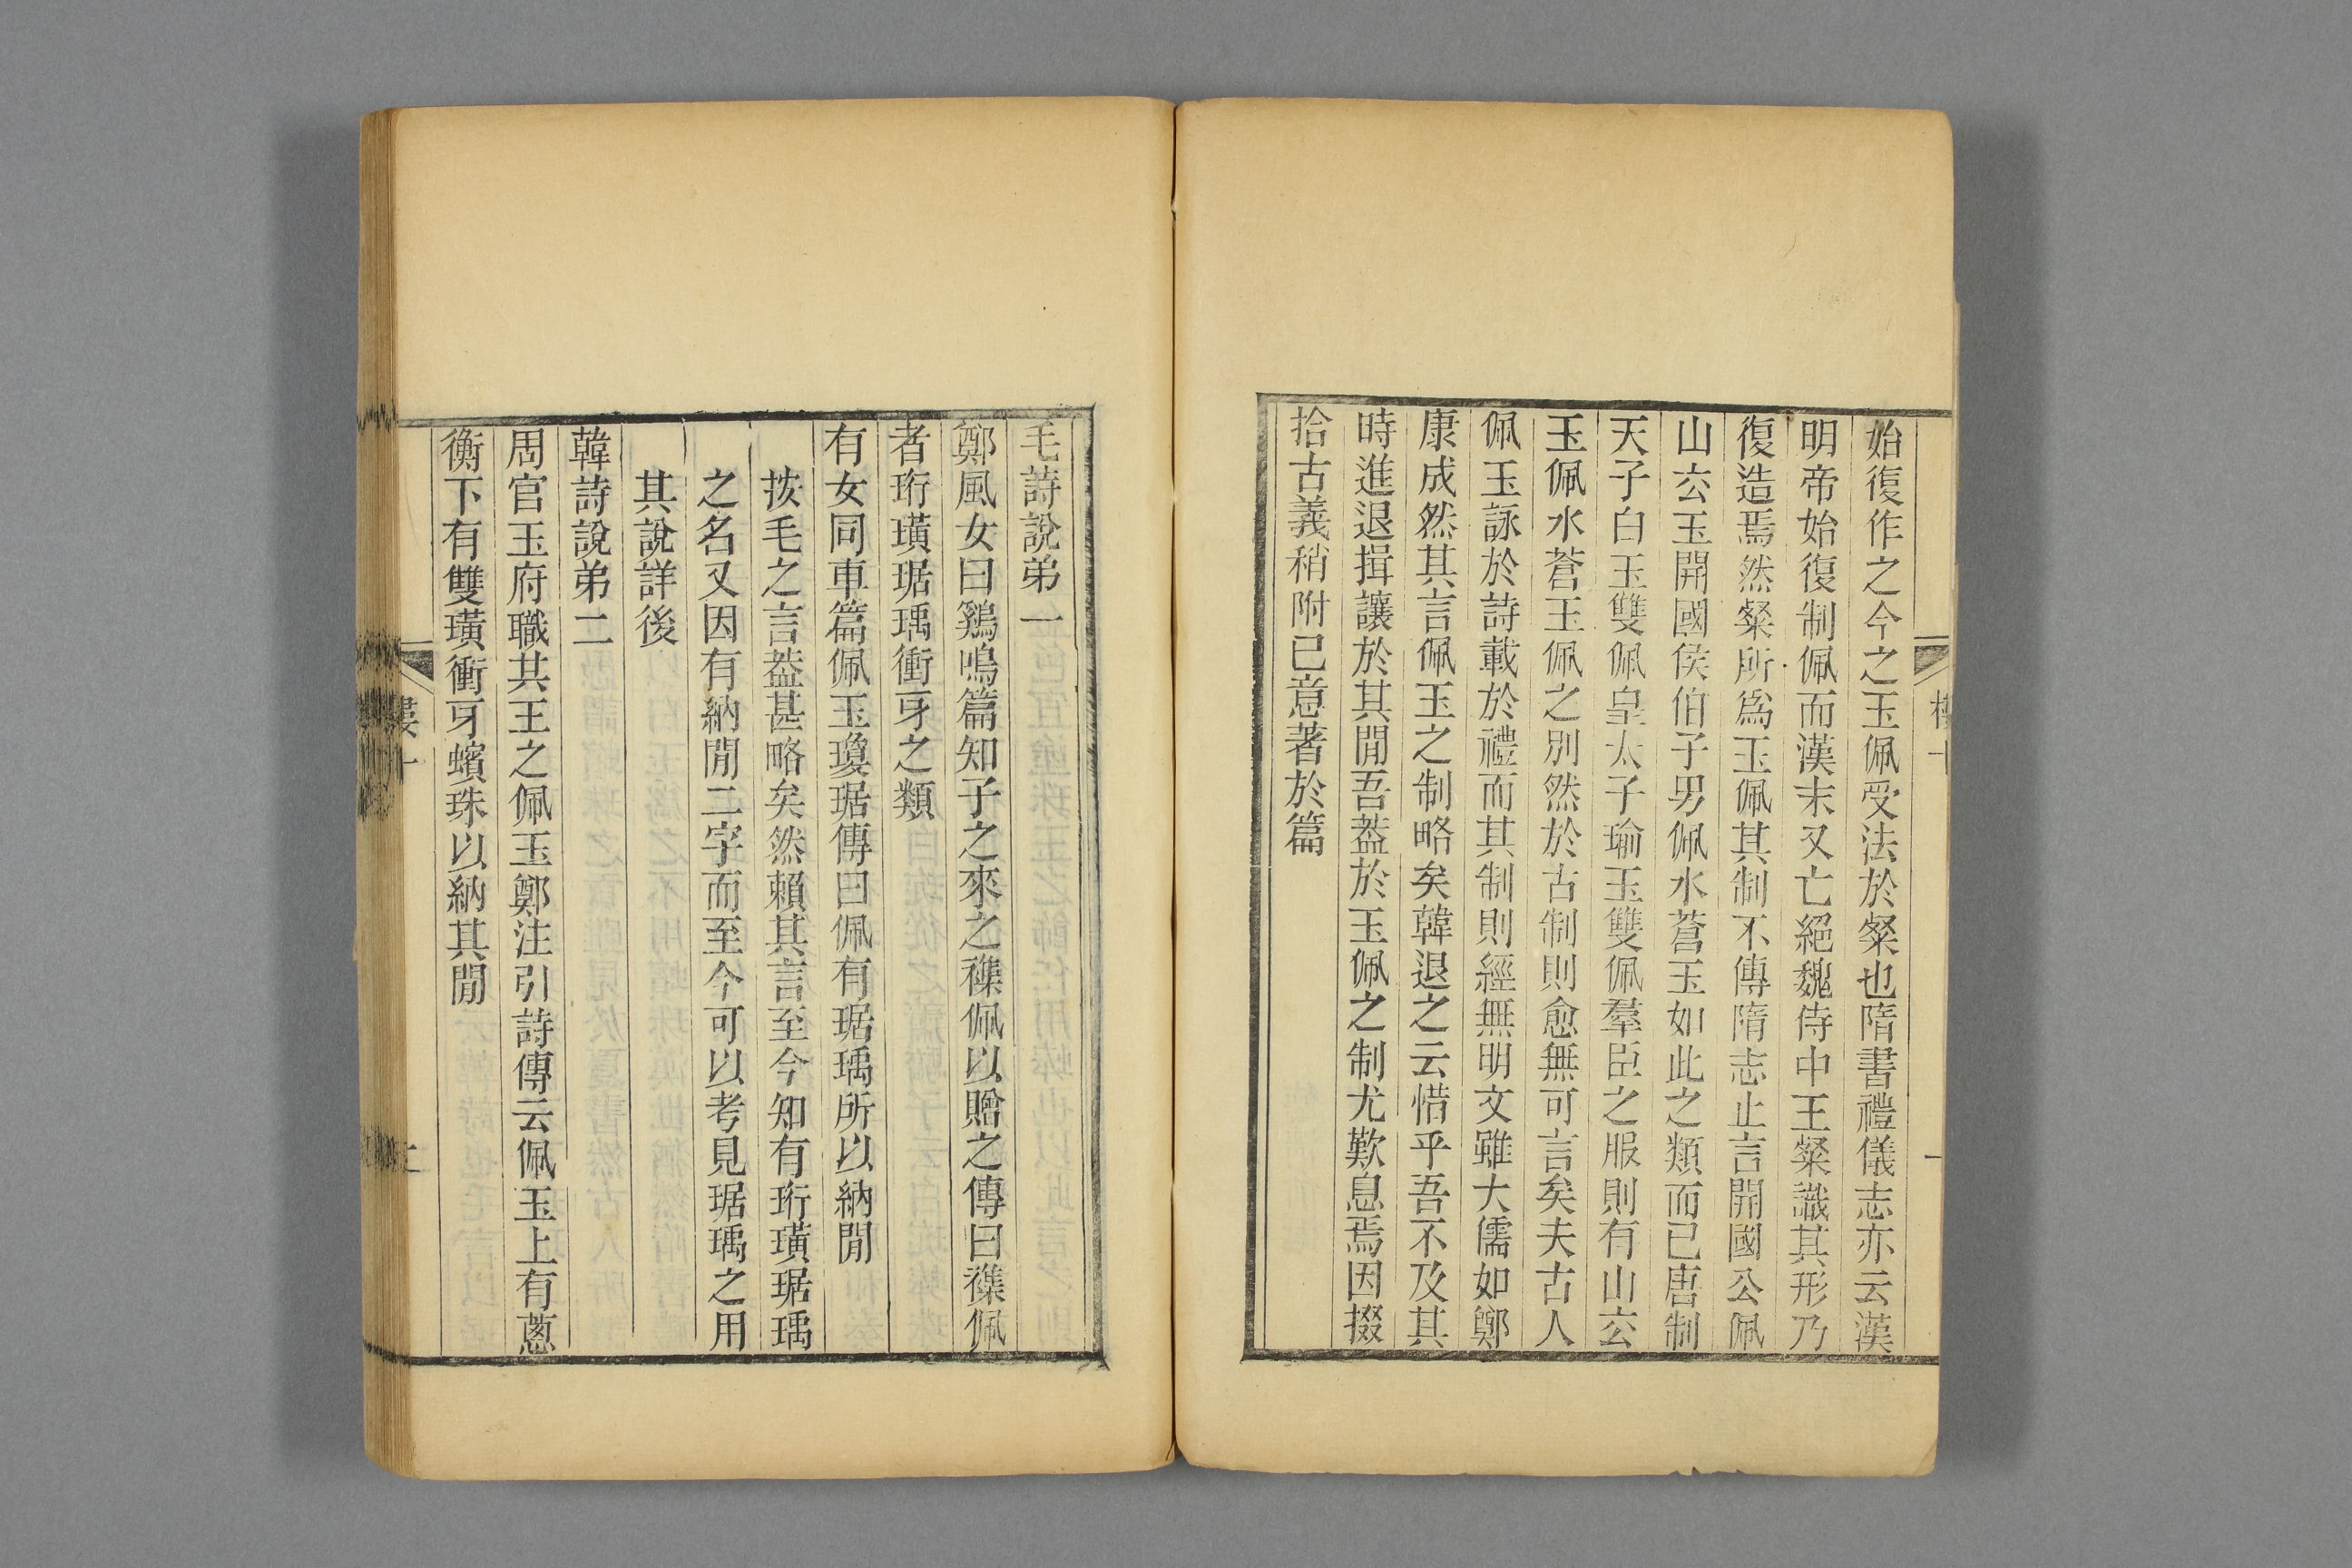 始復作之今之玉佩受法於粲也隋書禮儀志亦云漢
明帝始復制佩而漢末又亡絕魏侍中王粲識其形乃
復造焉然粲所爲玉佩其制不傳隋志止言開國公佩
山玄玉開國侯伯子男佩水蒼玉如此之類而已唐制
天子白玉雙佩皇太子瑜玉雙佩羣臣之服則有山玄
玉佩水蒼玉佩之別然於古制則愈無可言矣夫古人
佩玉詠於詩載於禮而其制則經無明文雖大儒如鄭
康成然其言佩玉之制略矣韓退之云惜乎吾不及其
時進退揖讓於其閒吾葢於玉佩之制尤歎息焉因掇
拾古義稍附已意著於篇
毛詩說弟一
鄭風女曰鷄鳴篇知子之來之襍佩以贈之傳曰襍佩
者珩璜琚瑀衝牙之類
有女同車篇佩玉瓊琚傳曰佩有琚瑀所以納閒
按毛之言葢甚略矣然賴其言至今知有珩璜琚瑀
之名又因有納閒二字而至今可以考見琚瑀之用
其說詳後
韓詩說弟二
周官玉府職共王之佩玉鄭注引詩傳云佩玉上有蔥
衡下有雙璜衝牙蠙珠以納其閒